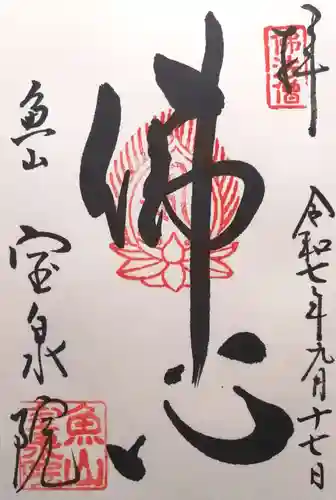 奉拝
佛法僧
令和七年九月十七日
佛心
魚山
宝泉院
魚山